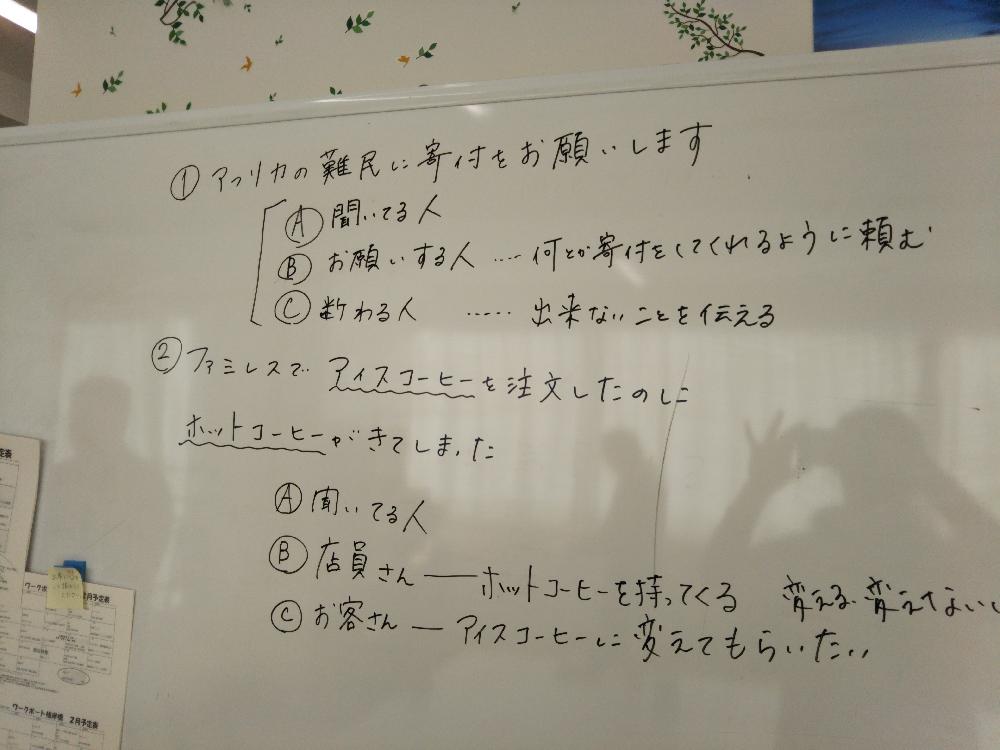 ① アフリカの難民に寄付をお願いします
Ⓐ 聞いてる人
Ⓑ お願いする人 ‥‥ 何とか寄付をしてくれるように頼む
Ⓒ 断わる人 ‥‥‥ 出来ないことを伝える
② ファミレスで アイスコーヒーを注文したのに
ホットコーヒーがきてしまった
Ⓐ 聞いてる人
Ⓑ 店員さん ― ホットコーヒーを持ってくる 変える・変えない
Ⓒ お客さん ― アイスコーヒーに変えてもらいたい
ワークポート 2月予定表
ワークポート 2月予定表